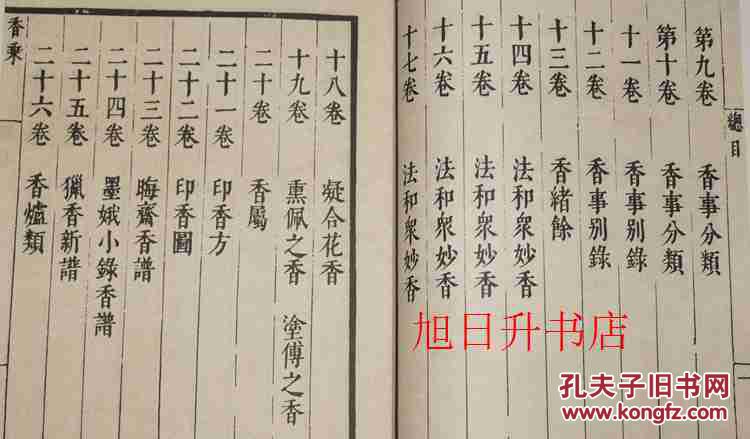 總目
第九卷 香事分類
第十卷 香事分類
十一卷 香事别錄
十二卷 香事别錄
十三卷 香緒餘
十四卷 法和衆妙香
十五卷 法和衆妙香
十六卷 法和衆妙香
十七卷 法和衆妙香
十八卷 凝合花香
十九卷 熏佩之香 塗傅之香
二十卷 香屬
二十一卷 印香方
二十二卷 印香圖
二十三卷 晦齋香譜
二十四卷 墨娥小錄香譜
二十五卷 獵香新譜
二十六卷 香爐類
香乘
旭日升书店
孔夫子旧书网
www.kongfz.com